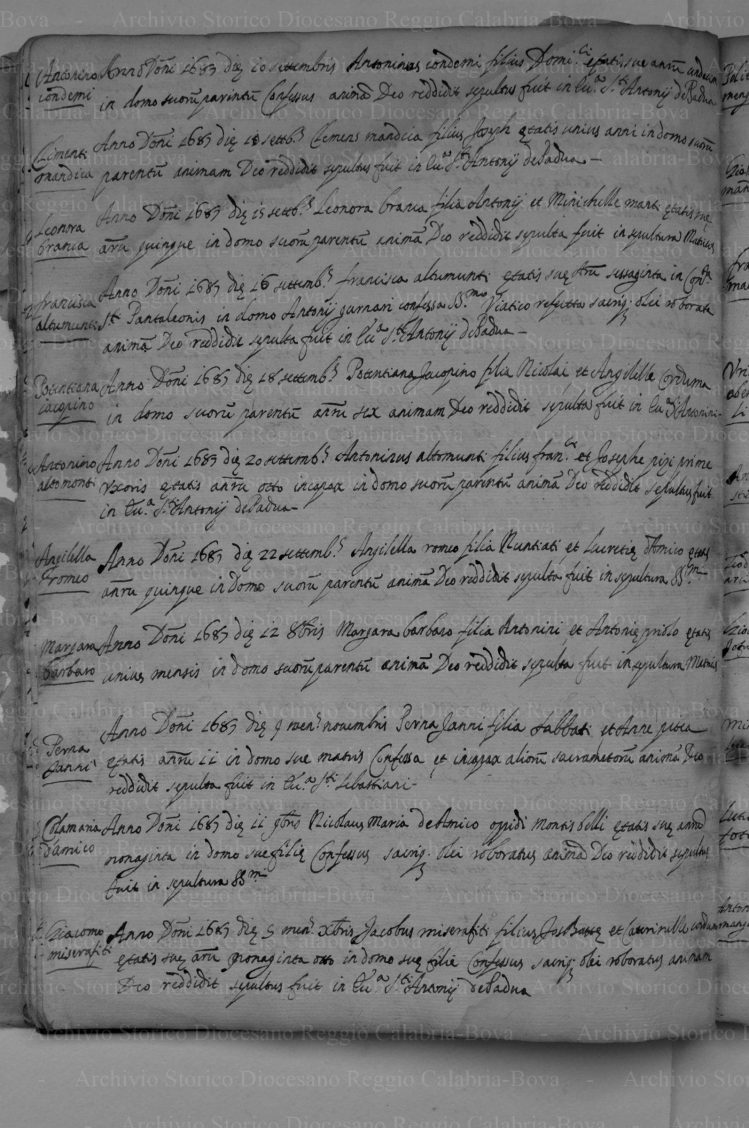 Antonino
condemi
Anno Dñi 1685 dię 10 settembris Antoninus condemi filius Domici ętatis sue annũ undecim
in domo suorũ parentũ Confessus animã Deo reddidit sepultus fuit in Eu.ª S.ti Antonij de Padua
Clementi
mandica
Anno Dñi 1685 dię 18 settb.s Clemens mandica filius Joseph ętatis unius anni in domo suorũ
parentũ animam Deo reddidit sepultus fuit in Eu.ª S.ti Antonij de Padua
Leonora
brancia
Anno Dñi 1685 dię 15 settb.s Leonora brancia filia Antonij et Minichelle ętatis sue
annũ quinque in domo suorũ parentũ animã Deo reddidit sepulta fuit in sepultura Matricis
Francisca
altumunti
Anno Dñi 1685 dię 16 settemb.s Francisca altumunti ętatis suę añũ sessaginta in
S.ti Pantaleonis in domo Antonij gurnari confessa SS.mo Viatico refecta sacriq olei roborata
animã Deo reddidit sepulta fuit in Eu.ª S.ti Antonij de Padua
Potentiana
iacopino
Anno Dñi 1685 dię 18 settemb.s Potentiana Jacopino filia Nicolai et Angilella Corduma
in domo suorũ parentũ annũ sex animam Deo reddidit sepulta fuit in Eu.ª S.ti Antonini
Antonino
altomonti
Anno Dñi 1685 dię 20 settemb.s Antoninus altomunti filius fran.ci et Josephe pipi prime
Uxoris ętatis annũ otto incapax in domo suorũ parentũ animã Deo reddidit sepultus fuit
in Eu.ª S.ti Antonij de Padua
Angilella
romeo
Anno Dñi 1685 dię 22 settemb.s Angilella romeo filia Nuntiati et Lucretię d'Amico ętatis
annũ quinque in Domo suorũ parentũ animã Deo reddidit sepulta fuit in sepultura SS.mi
Margara
barbaro
Anno Dñi 1685 dię 12 8bris Margara barbaro filia Antonini et Antonię priolo ętatis
unius mensis in domo suorũ parentũ animã Deo reddidit sepulta fuit in sepultura Matricis
Perna
Janni
Anno Dñi 1685 dię 9 men.s novembris Perna Janni filia Sabbati et Anne pitea
ętatis annũ 11 in domo sue matris Confessa et incapax aliorũ sacrametorũ animã Deo
reddidit sepulta fuit in Eu.ª S.ti Sebastiani
Colamaria
d'amico
Anno Dñi 1685 dię 11 9bris Nicolaus Maria de Amico opidi Montis belli ętatis suę annũ
nonaginta in domo sue filię Confessus sacriq olei roboratus animã Deo reddidit sepultus
fuit in sepultura SS.mi
Giacomo
miserafiti
Anno Dñi 1685 dię 5 men.s Xbris Jacobus miserafiti filius Jo: Battę et Catarinelle
ętatis suę annũ nonaginta otto in domo suę filię Confessus sacriq olei roboratus animam
Deo reddidit sepultus fuit in Eu.ª S.ti Antonij de Padua
Archivio Storico Diocesano Reggio Calabria-Bova